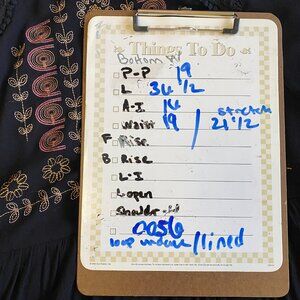 Things To Do
Bottom W
P-P 19
L 34 1/2
A-I 14
Waist 19 / stretch 21 1/2
F Rise
B Rise
L-I
L open
Shoulder
0056
/lined